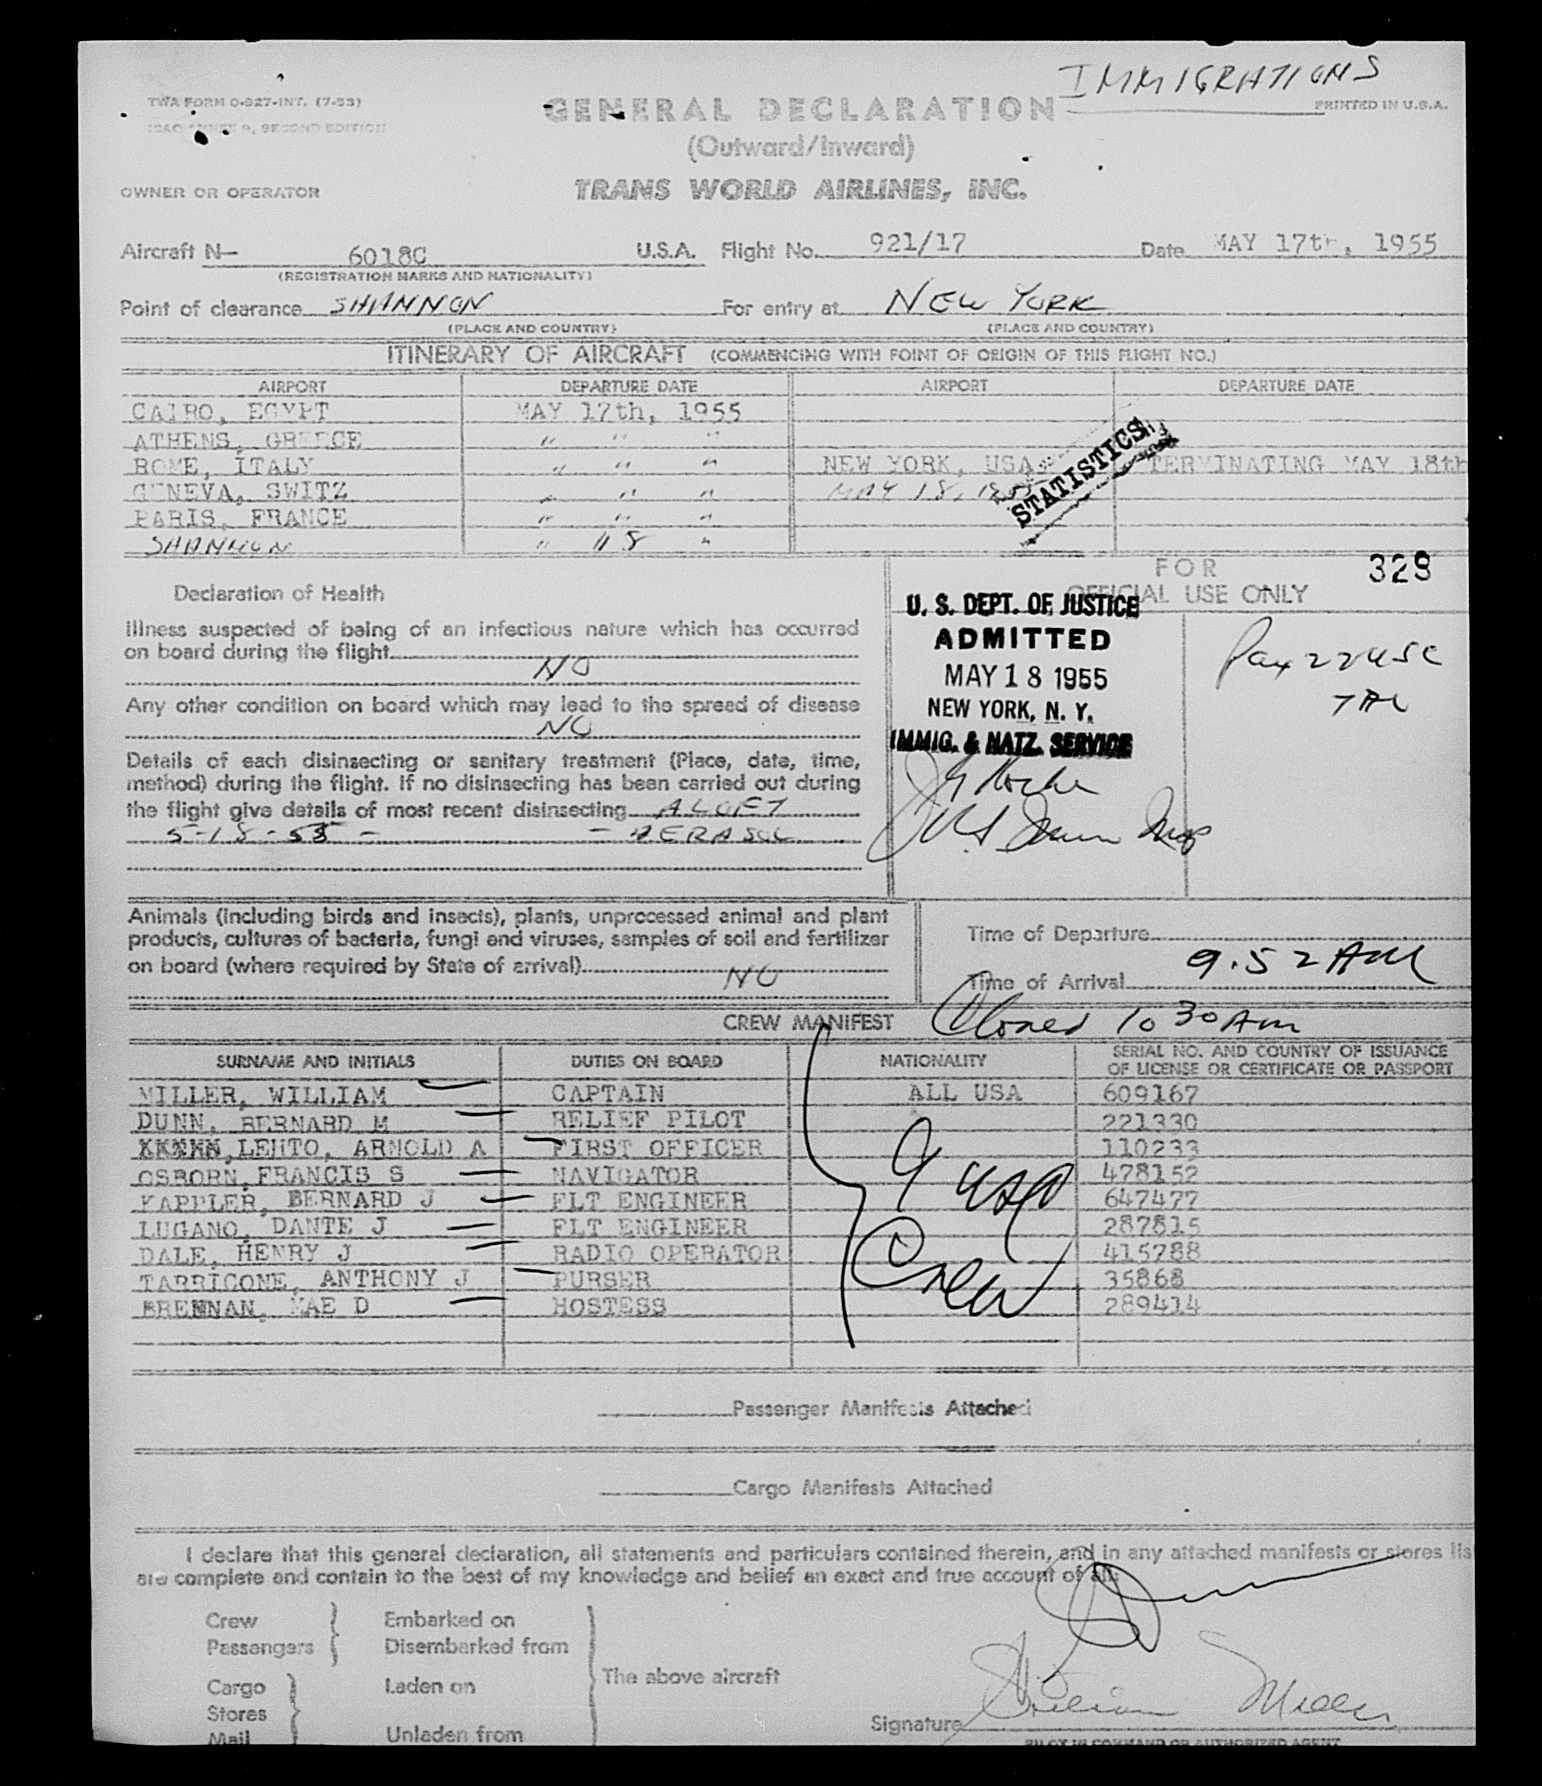 IMMIGRATIONS
TWA FORM O-927-INT. (7-53)
GENERAL DECLARATION
PRINTED IN U.S.A.
ICAO ANNEX 9, SECOND EDITION
(Outward/Inward)
OWNER OR OPERATOR
TRANS WORLD AIRLINES, INC.
Aircraft N- 6018C U.S.A. Flight No. 921/17 Date MAY 17th, 1955
(REGISTRATION MARKS AND NATIONALITY)
Point of clearance SHANNON For entry at NEW YORK
(PLACE AND COUNTRY) (PLACE AND COUNTRY)
ITINERARY OF AIRCRAFT (COMMENCING WITH POINT OF ORIGIN OF THIS FLIGHT NO.)
AIRPORT DEPARTURE DATE AIRPORT DEPARTURE DATE
CAIRO, EGYPT MAY 17th, 1955
ATHENS, GREECE " " "
ROME, ITALY " " " NEW YORK, USA TERMINATING MAY 18th
GENEVA, SWITZ " " " MAY 18, 1955
STATISTICS
PARIS, FRANCE " " "
SHANNON " 18 "
FOR 329
OFFICIAL USE ONLY
Declaration of Health
U. S. DEPT. OF JUSTICE
ADMITTED
MAY 18 1955
NEW YORK, N. Y.
IMMIG. & NATZ. SERVICE
Pax 22 USC
7 AL
Illness suspected of being of an infectious nature which has occurred
on board during the flight
NO
Any other condition on board which may lead to the spread of disease
NO
Details of each disinsecting or sanitary treatment (Place, date, time,
method) during the flight. If no disinsecting has been carried out during
the flight give details of most recent disinsecting ALOFT
5-18-55 - - AERASOL
Animals (including birds and insects), plants, unprocessed animal and plant
products, cultures of bacteria, fungi and viruses, samples of soil and fertilizer
on board (where required by State of arrival) NO
Time of Departure
Time of Arrival 9.52 AM
CREW MANIFEST Cloned 10 30 Am
SURNAME AND INITIALS DUTIES ON BOARD NATIONALITY SERIAL NO. AND COUNTRY OF ISSUANCE
OF LICENSE OR CERTIFICATE OR PASSPORT
MILLER, WILLIAM CAPTAIN ALL USA 609167
DUNN, BERNARD M RELIEF PILOT 221330
LEHTO, ARNOLD A FIRST OFFICER 110233
OSBORN, FRANCIS S NAVIGATOR 478152
KAPPLER, BERNARD J FLT ENGINEER 647477
LUGANO, DANTE J FLT ENGINEER 287815
DALE, HENRY J RADIO OPERATOR 415788
TARRICONE, ANTHONY J PURSER 35868
BRENNAN, MAE D HOSTESS 289414
9 USC
Crew
Passenger Manifests Attached
Cargo Manifests Attached
I declare that this general declaration, all statements and particulars contained therein, and in any attached manifests or stores lis
are complete and contain to the best of my knowledge and belief an exact and true account of all:
Crew Embarked on
Passengers Disembarked from
The above aircraft
Cargo Laden on
Stores
Mail Unladen from
Signature William Miller
PILOT IN COMMAND OR AUTHORIZED AGENT